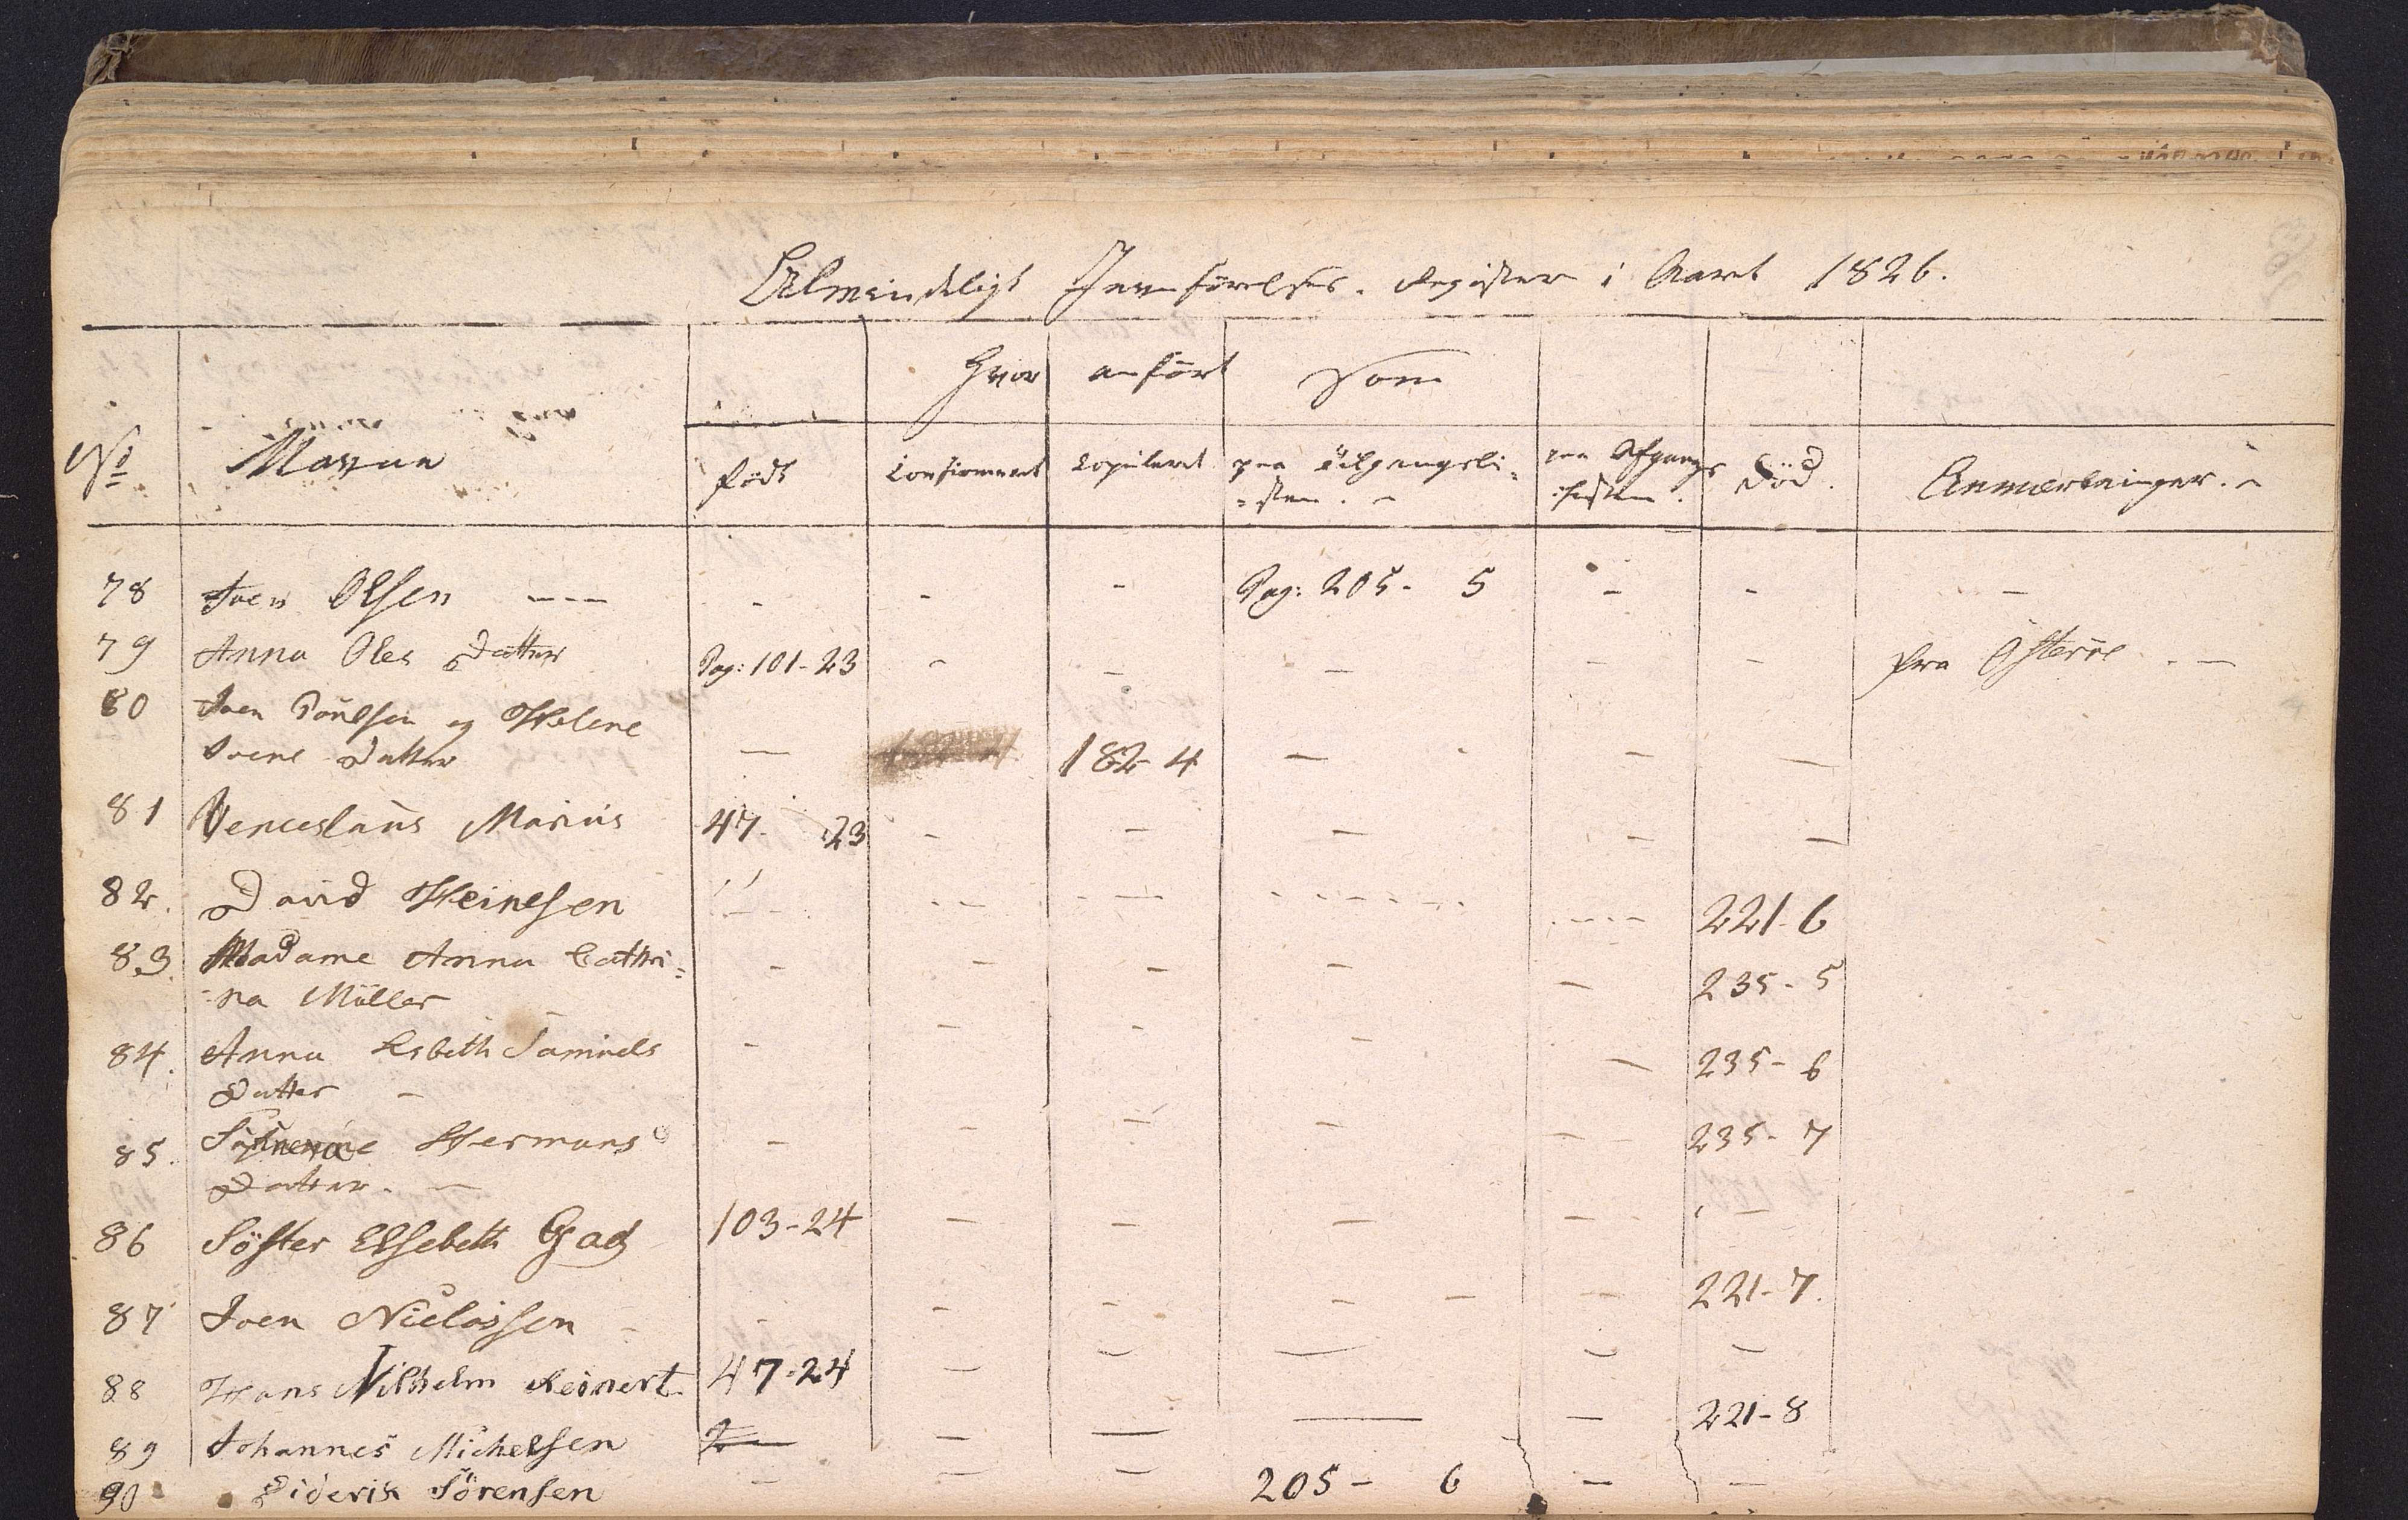 Almindeligt Jevnförelses-Register i Aaret 1826.
Hvor anfört Som
No Navne födt Confirmeret Copuleret paa Tilgangsli=
=sten. paa Afgangs
Listen. Död. Anmærkninger.
78 Joen Olsen --- - - - Pag: 205- 5 - - -
79 Anna Oles Datter Pag: 101-23 - - - - - fra Österöe. -
80 Joen Poulsen og Helene
Joens Datter - 182-4 - - -
81 Venceslaus Marius 47- 23 - - - - -
82. David Heinesen - - - - - 221-6
83. Madame Anna Cathri=
=na Müller - - - - - 235-5
84. Anna Esbeth Samuels
Datter - - - - - - 235-6
85. Hermans
Datter. - - - - - - 235-7
86 Söster Elsebeth Gad 103-24 - - - - -
87 Joen Niclassen - - - - - - 221-7.
88 Hans Vilhelm Reinert 47-24 - - - - -
89 Johannes Michelsen - - - - 221-8
90 Diderik Sörensen - - - 205- 6 - -